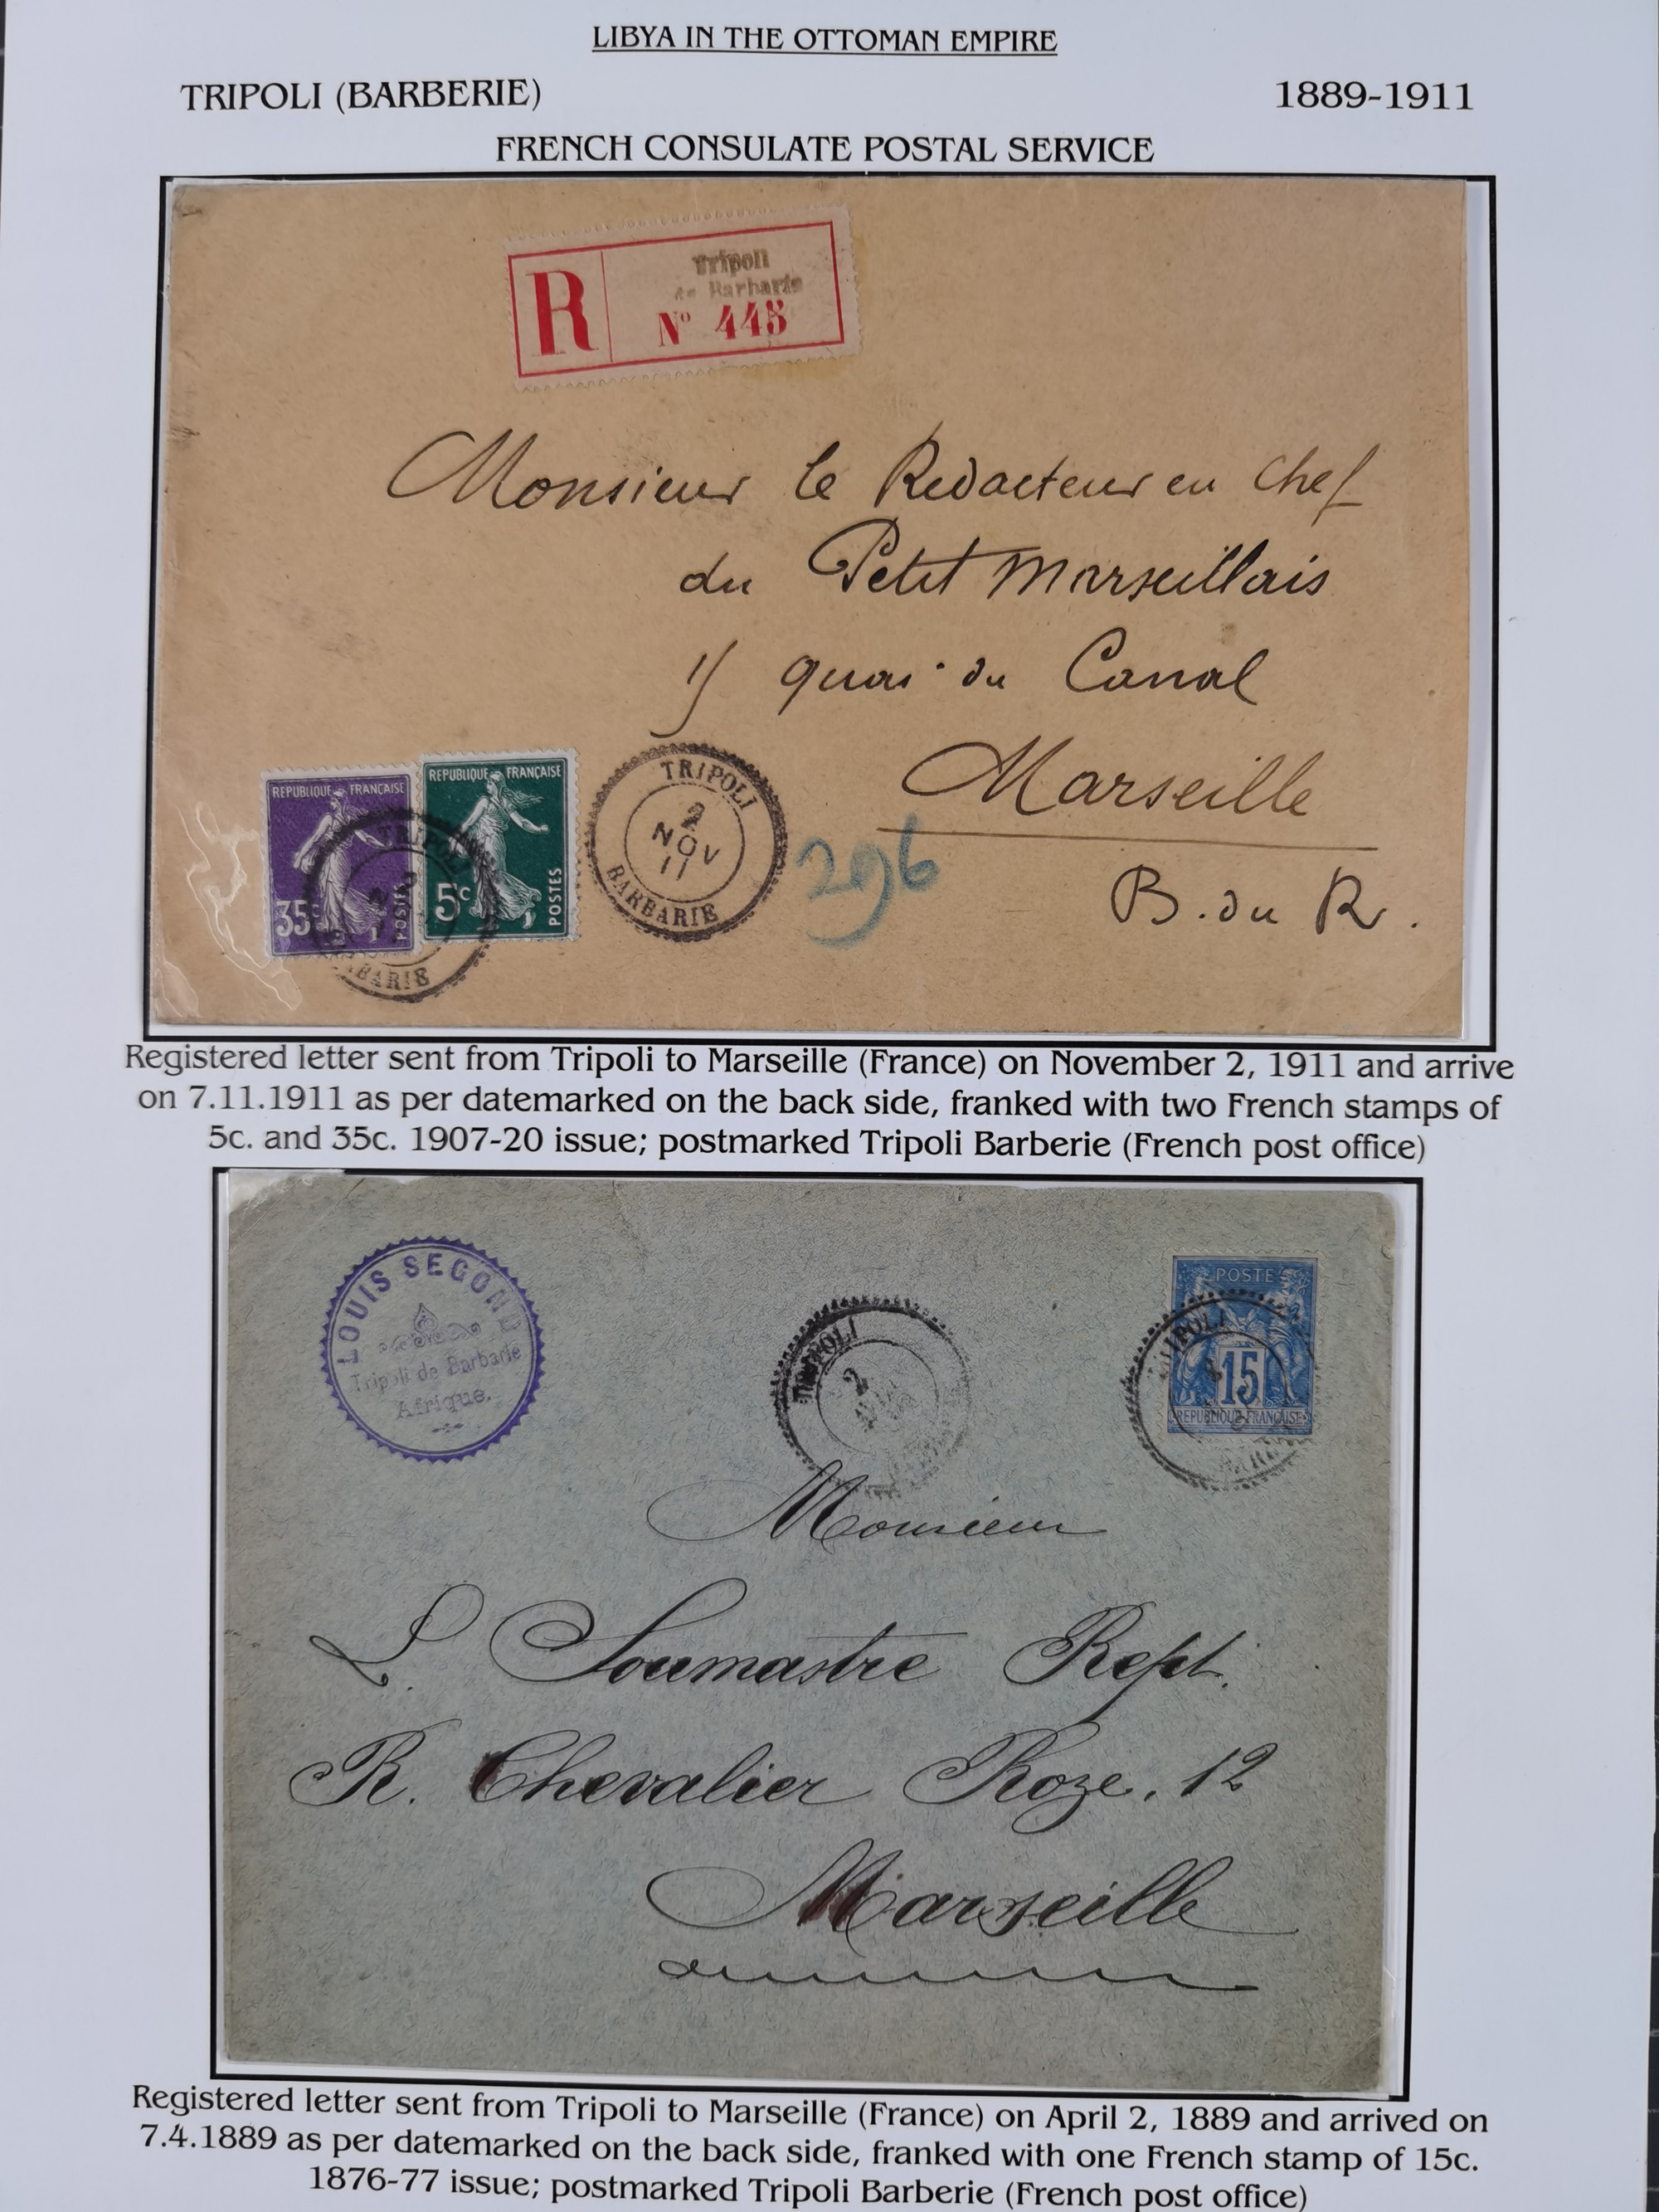 LIBYA IN THE OTTOMAN EMPIRE
TRIPOLI (BARBERIE) 1889-1911
FRENCH CONSULATE POSTAL SERVICE
R
Tripoli
de Barbarie
Nº 445
Monsieur le Redacteur en chef
du Petit Marseillais
quai du Canal
Marseille
B. du R.
REPUBLIQUE FRANÇAISE
35c
POSTES
REPUBLIQUE FRANÇAISE
5c
POSTES
TRIPOLI
BARBARIE
TRIPOLI
2
NOV
11
BARBARIE
296
Registered letter sent from Tripoli to Marseille (France) on November 2, 1911 and arrive
on 7.11.1911 as per datemarked on the back side, franked with two French stamps of
5c. and 35c. 1907-20 issue; postmarked Tripoli Barberie (French post office)
LOUIS SEGOND
Tripoli de Barbarie
Afrique.
TRIPOLI
2
POSTE
15
REPUBLIQUE FRANÇAISE
TRIPOLI
Monsieur
L. Soumastre Rept.
R. Chevalier Roze, 12
Marseille
Registered letter sent from Tripoli to Marseille (France) on April 2, 1889 and arrived on
7.4.1889 as per datemarked on the back side, franked with one French stamp of 15c.
1876-77 issue; postmarked Tripoli Barberie (French post office)